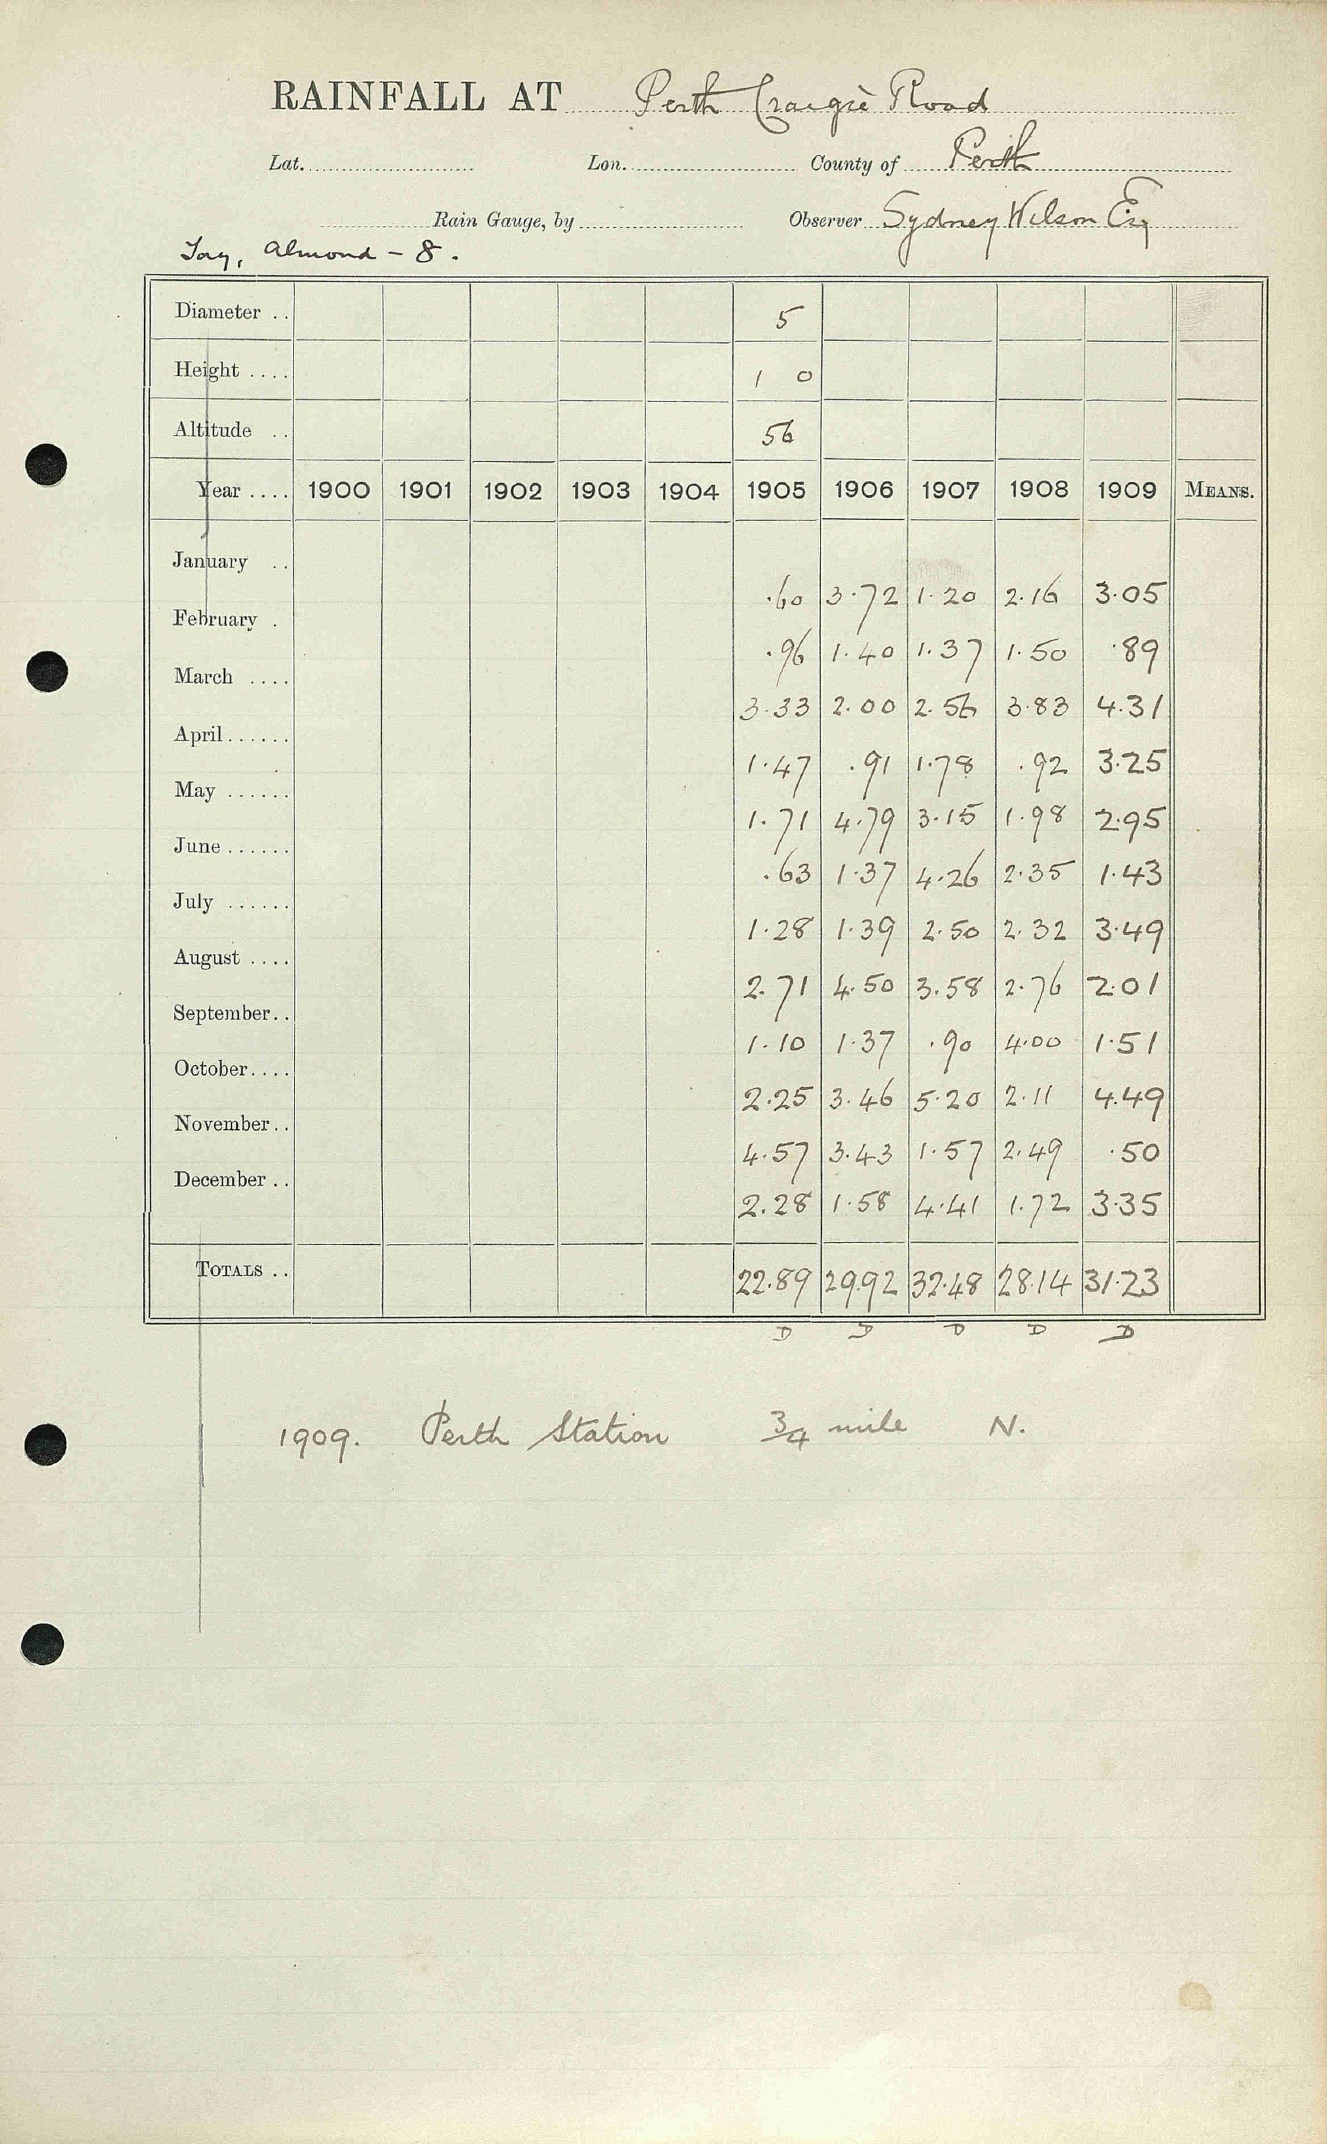 RAINFALL AT Perth Craigie Road
Lat. Lon. County of Perth
Rain Gauge, by Observer Sydney Wilson Esq
Tay, Almond - 8.
Diameter .. 5
Height .... 1 0
Altitude .. 56
Year .... 1900 1901 1902 1903 1904 1905 1906 1907 1908 1909 MEANS.
January .. .60 3.72 1.20 2.16 3.05
February . .96 1.40 1.37 1.50 .89
March .... 3.33 2.00 2.56 3.83 4.31
April...... 1.47 .91 1.78 .92 3.25
May ...... 1.71 4.79 3.15 1.98 2.95
June ...... .63 1.37 4.26 2.35 1.43
July ...... 1.28 1.39 2.50 2.32 3.49
August .... 2.71 4.50 3.58 2.76 2.01
September.. 1.10 1.37 .90 4.00 1.51
October.... 2.25 3.46 5.20 2.11 4.49
November.. 4.57 3.43 1.57 2.49 .50
December .. 2.28 1.58 4.41 1.72 3.35
TOTALS .. 22.89 29.92 32.48 28.14 31.23
D D D D D
1909. Perth Station 3/4 mile N.